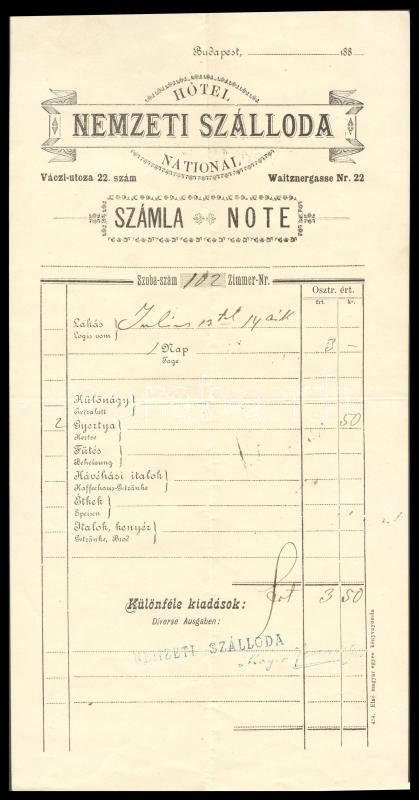 Budapest, 188
HÔTEL
NEMZETI SZÁLLODA
NATIONAL
Váczi-utcza 22. szám Waitznergasse Nr. 22
SZÁMLA NOTE
Szoba-szám 102 Zimmer-Nr.
Osztr. ért.
frt. kr.
Lakás Julius 13tól 14 éik
Logis vom
1 Nap 3 –
Tage
Különágy
Extrabett
2 Gyertya 50
Kerze
Fűtés
Beheizung
Kávéházi italok
Kaffeehaus-Getränke
Étkek
Speisen
Italok, kenyér
Getränke, Brod
frt 3 50
Különféle kiadások:
Diverse Ausgaben:
NEMZETI SZÁLLODA
Első magyar egyes könyvnyomda